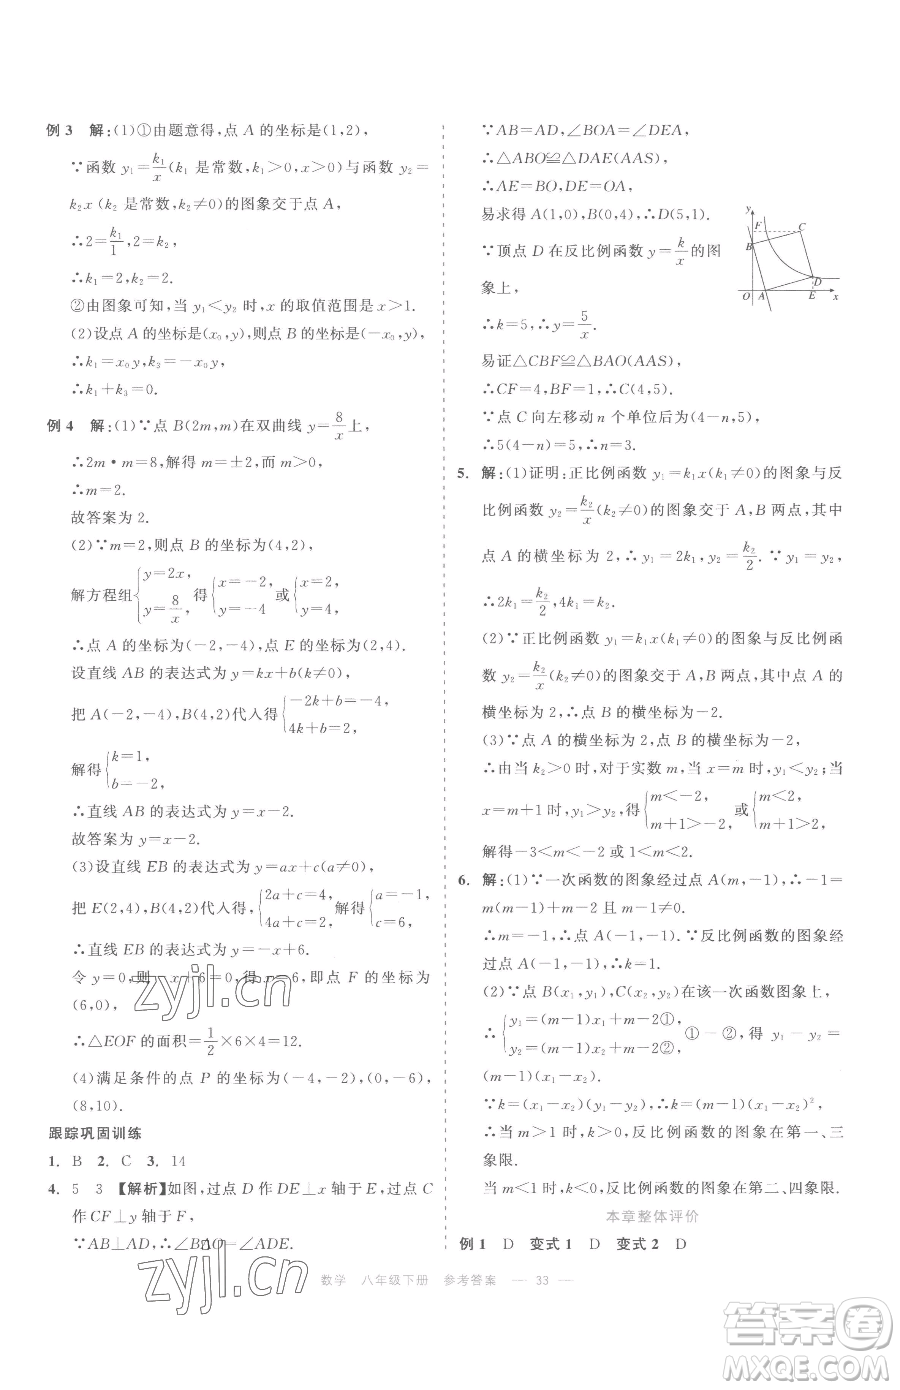 例 3 解:(1)①由题意得,点 A 的坐标是(1,2),
∵函数 y₁=k₁/x(k₁ 是常数,k₁>0,x>0)与函数 y₂=
k₂x(k₂ 是常数,k₂≠0)的图象交于点 A,
∴2=k₁/1,2=k₂,
∴k₁=2,k₂=2.
②由图象可知,当 y₁<y₂ 时,x 的取值范围是 x>1.
(2)设点 A 的坐标是(x₀,y),则点 B 的坐标是(-x₀,y),
∴k₁=x₀y,k₃=-x₀y,
∴k₁+k₃=0.
例 4 解:(1)∵点 B(2m,m)在双曲线 y=8/x上,
∴2m·m=8,解得 m=±2,而 m>0,
∴m=2.
故答案为 2.
(2)∵m=2,则点 B 的坐标为(4,2),
解方程组{y=2x, y=8/x,得{x=-2, y=-4或{x=2, y=4,
∴点 A 的坐标为(-2,-4),点 E 的坐标为(2,4).
设直线 AB 的表达式为 y=kx+b(k≠0),
把 A(-2,-4),B(4,2)代入得{-2k+b=-4, 4k+b=2,
解得{k=1, b=-2,
∴直线 AB 的表达式为 y=x-2.
故答案为 y=x-2.
(3)设直线 EB 的表达式为 y=ax+c(a≠0),
把 E(2,4),B(4,2)代入得{2a+c=4, 4a+c=2,解得{a=-1, c=6,
∴直线 EB 的表达式为 y=-x+6.
令 y=0,则-x+6=0,得 x=6,即点 F 的坐标为
(6,0),
∴△EOF 的面积=1/2×6×4=12.
(4)满足条件的点 P 的坐标为(-4,-2),(0,-6),
(8,10).
跟踪巩固训练
1. B 2. C 3. 14
4. 5 3 【解析】如图,过点 D 作 DE⊥x 轴于 E,过点 C
作 CF⊥y 轴于 F,
∵AB⊥AD,∴∠BAO=∠ADE.
∵AB=AD,∠BOA=∠DEA,
∴△ABO≌△DAE(AAS),
∴AE=BO,DE=OA,
易求得 A(1,0),B(0,4),∴D(5,1).
∵顶点 D 在反比例函数 y=k/x的图
象上,
∴k=5,∴y=5/x.
易证△CBF≌△BAO(AAS),
∴CF=4,BF=1,∴C(4,5),
∵点 C 向左移动 n 个单位后为(4-n,5),
∴5(4-n)=5,∴n=3.
y
F
C
B
D
O
A
E
x
5. 解:(1)证明:正比例函数 y₁=k₁x(k₁≠0)的图象与反
比例函数 y₂=k₂/x(k₂≠0)的图象交于 A,B 两点,其中
点 A 的横坐标为 2,∴y₁=2k₁,y₂=k₂/2.∵y₁=y₂,
∴2k₁=k₂/2,4k₁=k₂.
(2)∵正比例函数 y₁=k₁x(k₁≠0)的图象与反比例函
数 y₂=k₂/x(k₂≠0)的图象交于 A,B 两点,点 A 的
横坐标为 2,∴点 B 的横坐标为-2.
(3)∵点 A 的横坐标为 2,点 B 的横坐标为-2,
∴由当 k₂>0 时,对于实数 m,当 x=m 时,y₁<y₂;当
x=m+1 时,y₁>y₂,得{m<-2, m+1>-2 或{m<2, m+1>2,
解得-3<m<-2 或 1<m<2.
6. 解:(1)∵一次函数的图象经过点 A(m,-1),∴-1=
m(m-1)+m-2 且 m>0 或 m<0.
∴m=-1,∴点 A(-1,-1).∵反比例函数的图象经
过点 A(-1,-1),∴k=1.
(2)∵点 B(x₁,y₁),C(x₂,y₂)在该一次函数图象上,
∴{y₁=(m-1)x₁+m-2①, y₂=(m-1)x₂+m-2②,①-②,得 y₁-y₂=
(m-1)(x₁-x₂).
∵k=(x₁-x₂)(y₁-y₂),∴k=(m-1)(x₁-x₂)²,
∴当 m>1 时,k>0,反比例函数的图象在第一、三
象限.
当 m<1 时,k<0,反比例函数的图象在第二、四象限.
本章整体评价
例 1 D 变式 1 D 变式 2 D
数学 八年级下册 参考答案 — 33 —
zyjl.cn
zyjl.cn
答案圈
MXQE.COM